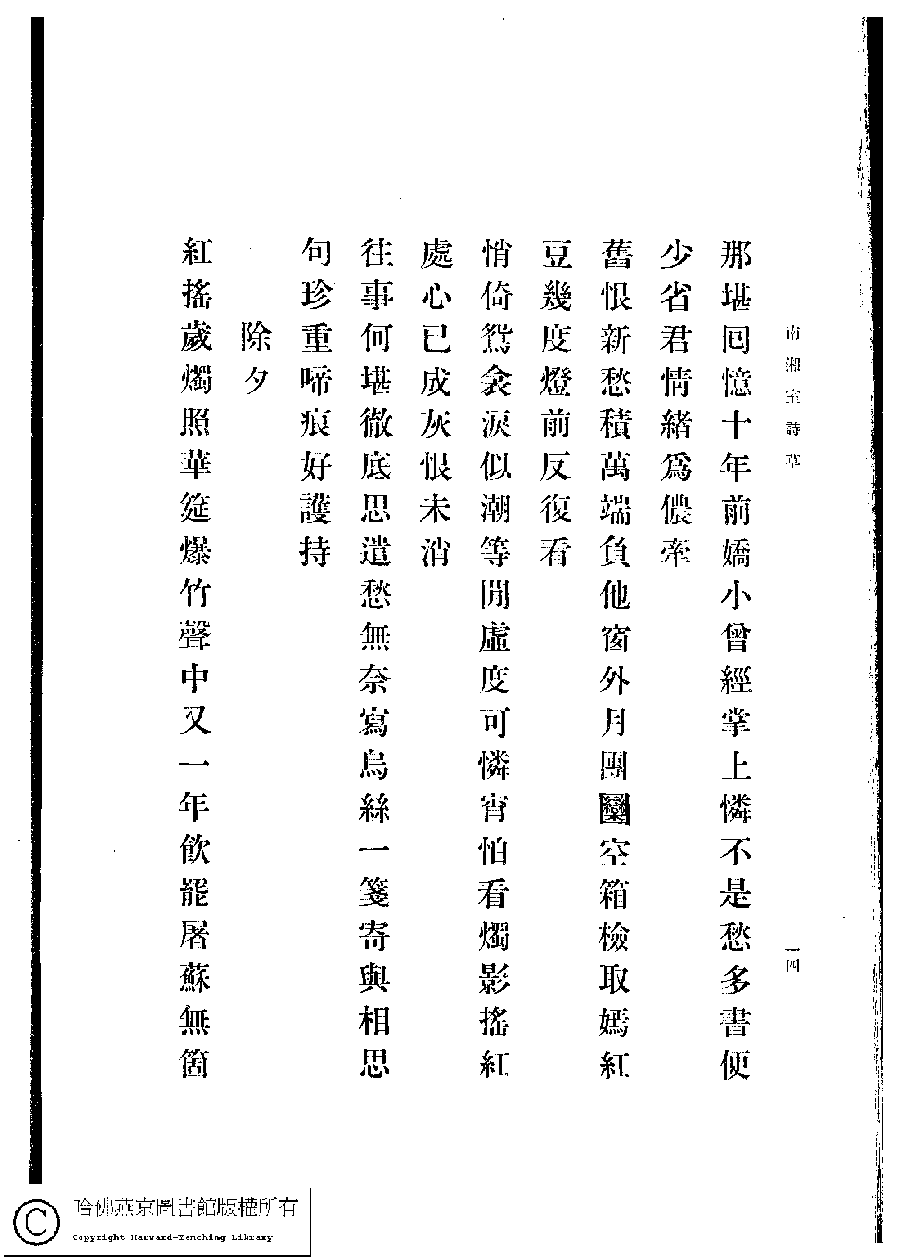 南湘室詩草
一四
那堪回憶十年前嬌小曾經掌上憐不是愁多書便
少省君情緒爲儂牽
舊恨新愁積萬端負他窗外月團圞空箱檢取嫣紅
豆幾度燈前反復看
悄倚鴛衾淚似潮等閒虛度可憐宵怕看燭影搖紅
處心已成灰恨未消
往事何堪徹底思遣愁無奈寫烏絲一箋寄與相思
句珍重啼痕好護持
除夕
紅搖歲燭照華筵爆竹聲中又一年飲罷屠蘇無箇
哈佛燕京圖書館版權所有
Copyright Harvard-Yenching Library